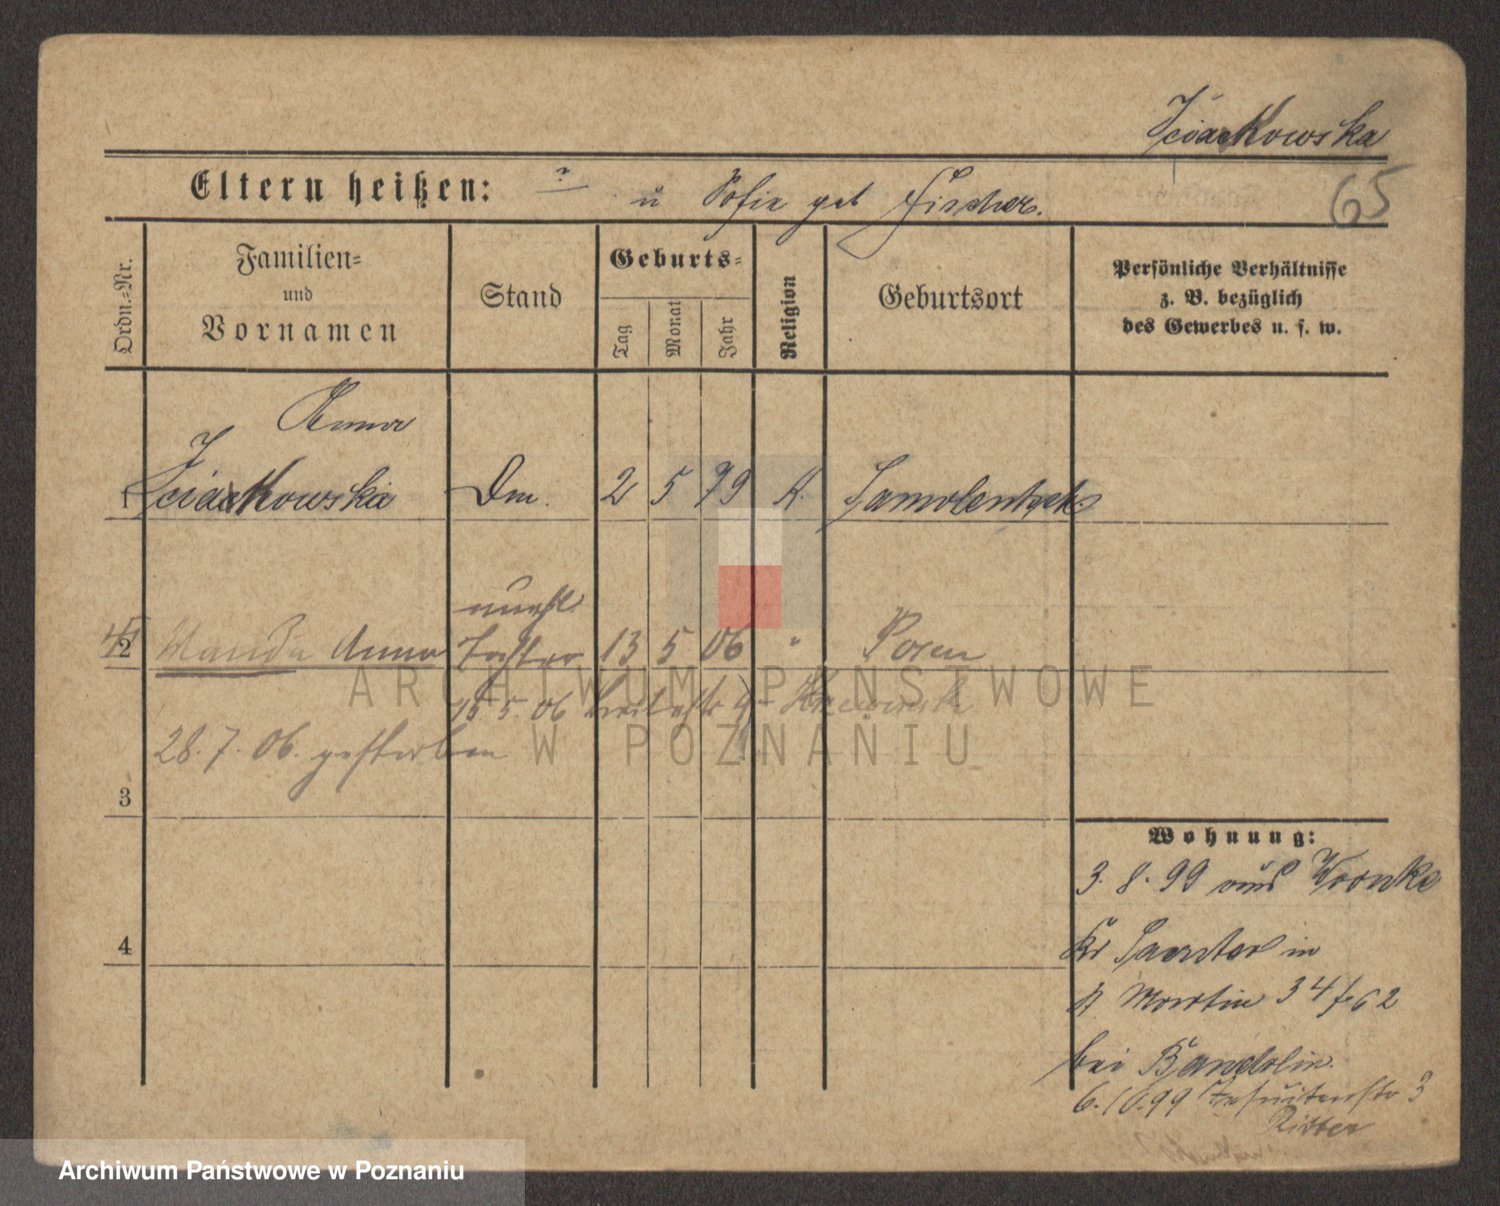 Eltern heißen: ? u Sofie geb Fischer.
65
Ordn.=Nr.
Familien=
und
Vornamen
Stand
Geburts=
Tag
Monat
Jahr
Religion
Geburtsort
Persönliche Verhältnisse
z. B. bezüglich
des Gewerbes u. s. w.
Anna
1 Dm. 2 5 79 K.
unehl
2 Wanda Anna Tochter 13 5 06 " Posen
15 5. 06
28. 7. 06. gestorben
3
4
Wohnung:
3. 8. 99 aus Wronke
Kr Samter in
St Martin 34
bei Bandolin.
6. 10. 99 Jesuitenstr 3
Ritter
ARCHIWUM PAŃSTWOWE
W POZNANIU
Archiwum Państwowe w Poznaniu